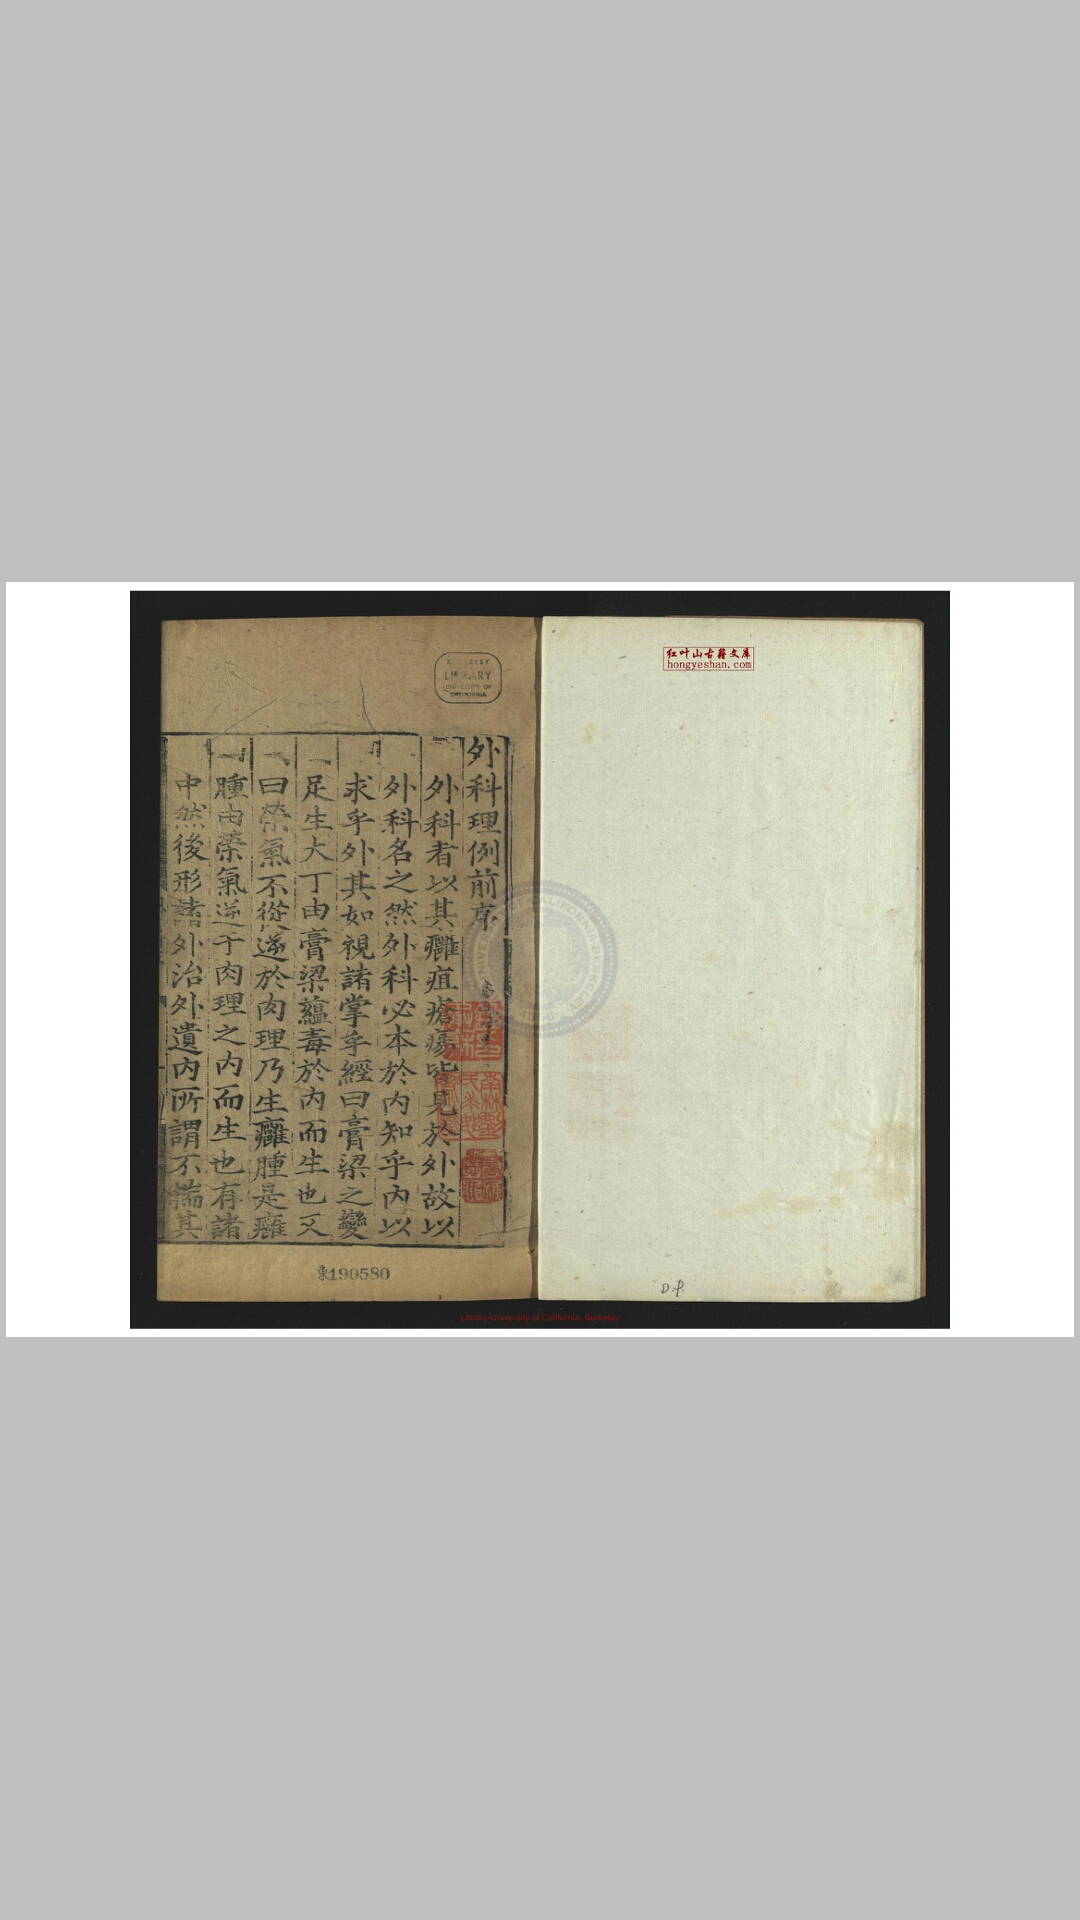 红叶山古籍文库
hongyeshan.com
LIBRARY
UNIVERSITY OF
CALIFORNIA
外科理例前序
外科者以其癰疽瘡瘍皆見於外故以
外科名之然外科必本於内知乎内以
求乎外其如視諸掌乎經曰膏梁之變
足生大丁由膏梁蘊毒於内而生也又
曰榮氣不從逆於肉理乃生癰腫是癰
腫由榮氣逆于肉理之内而生也有諸
中然後形諸外治外遺内所謂不揣其
東190580
D.P.
Library University of California, Berkeley